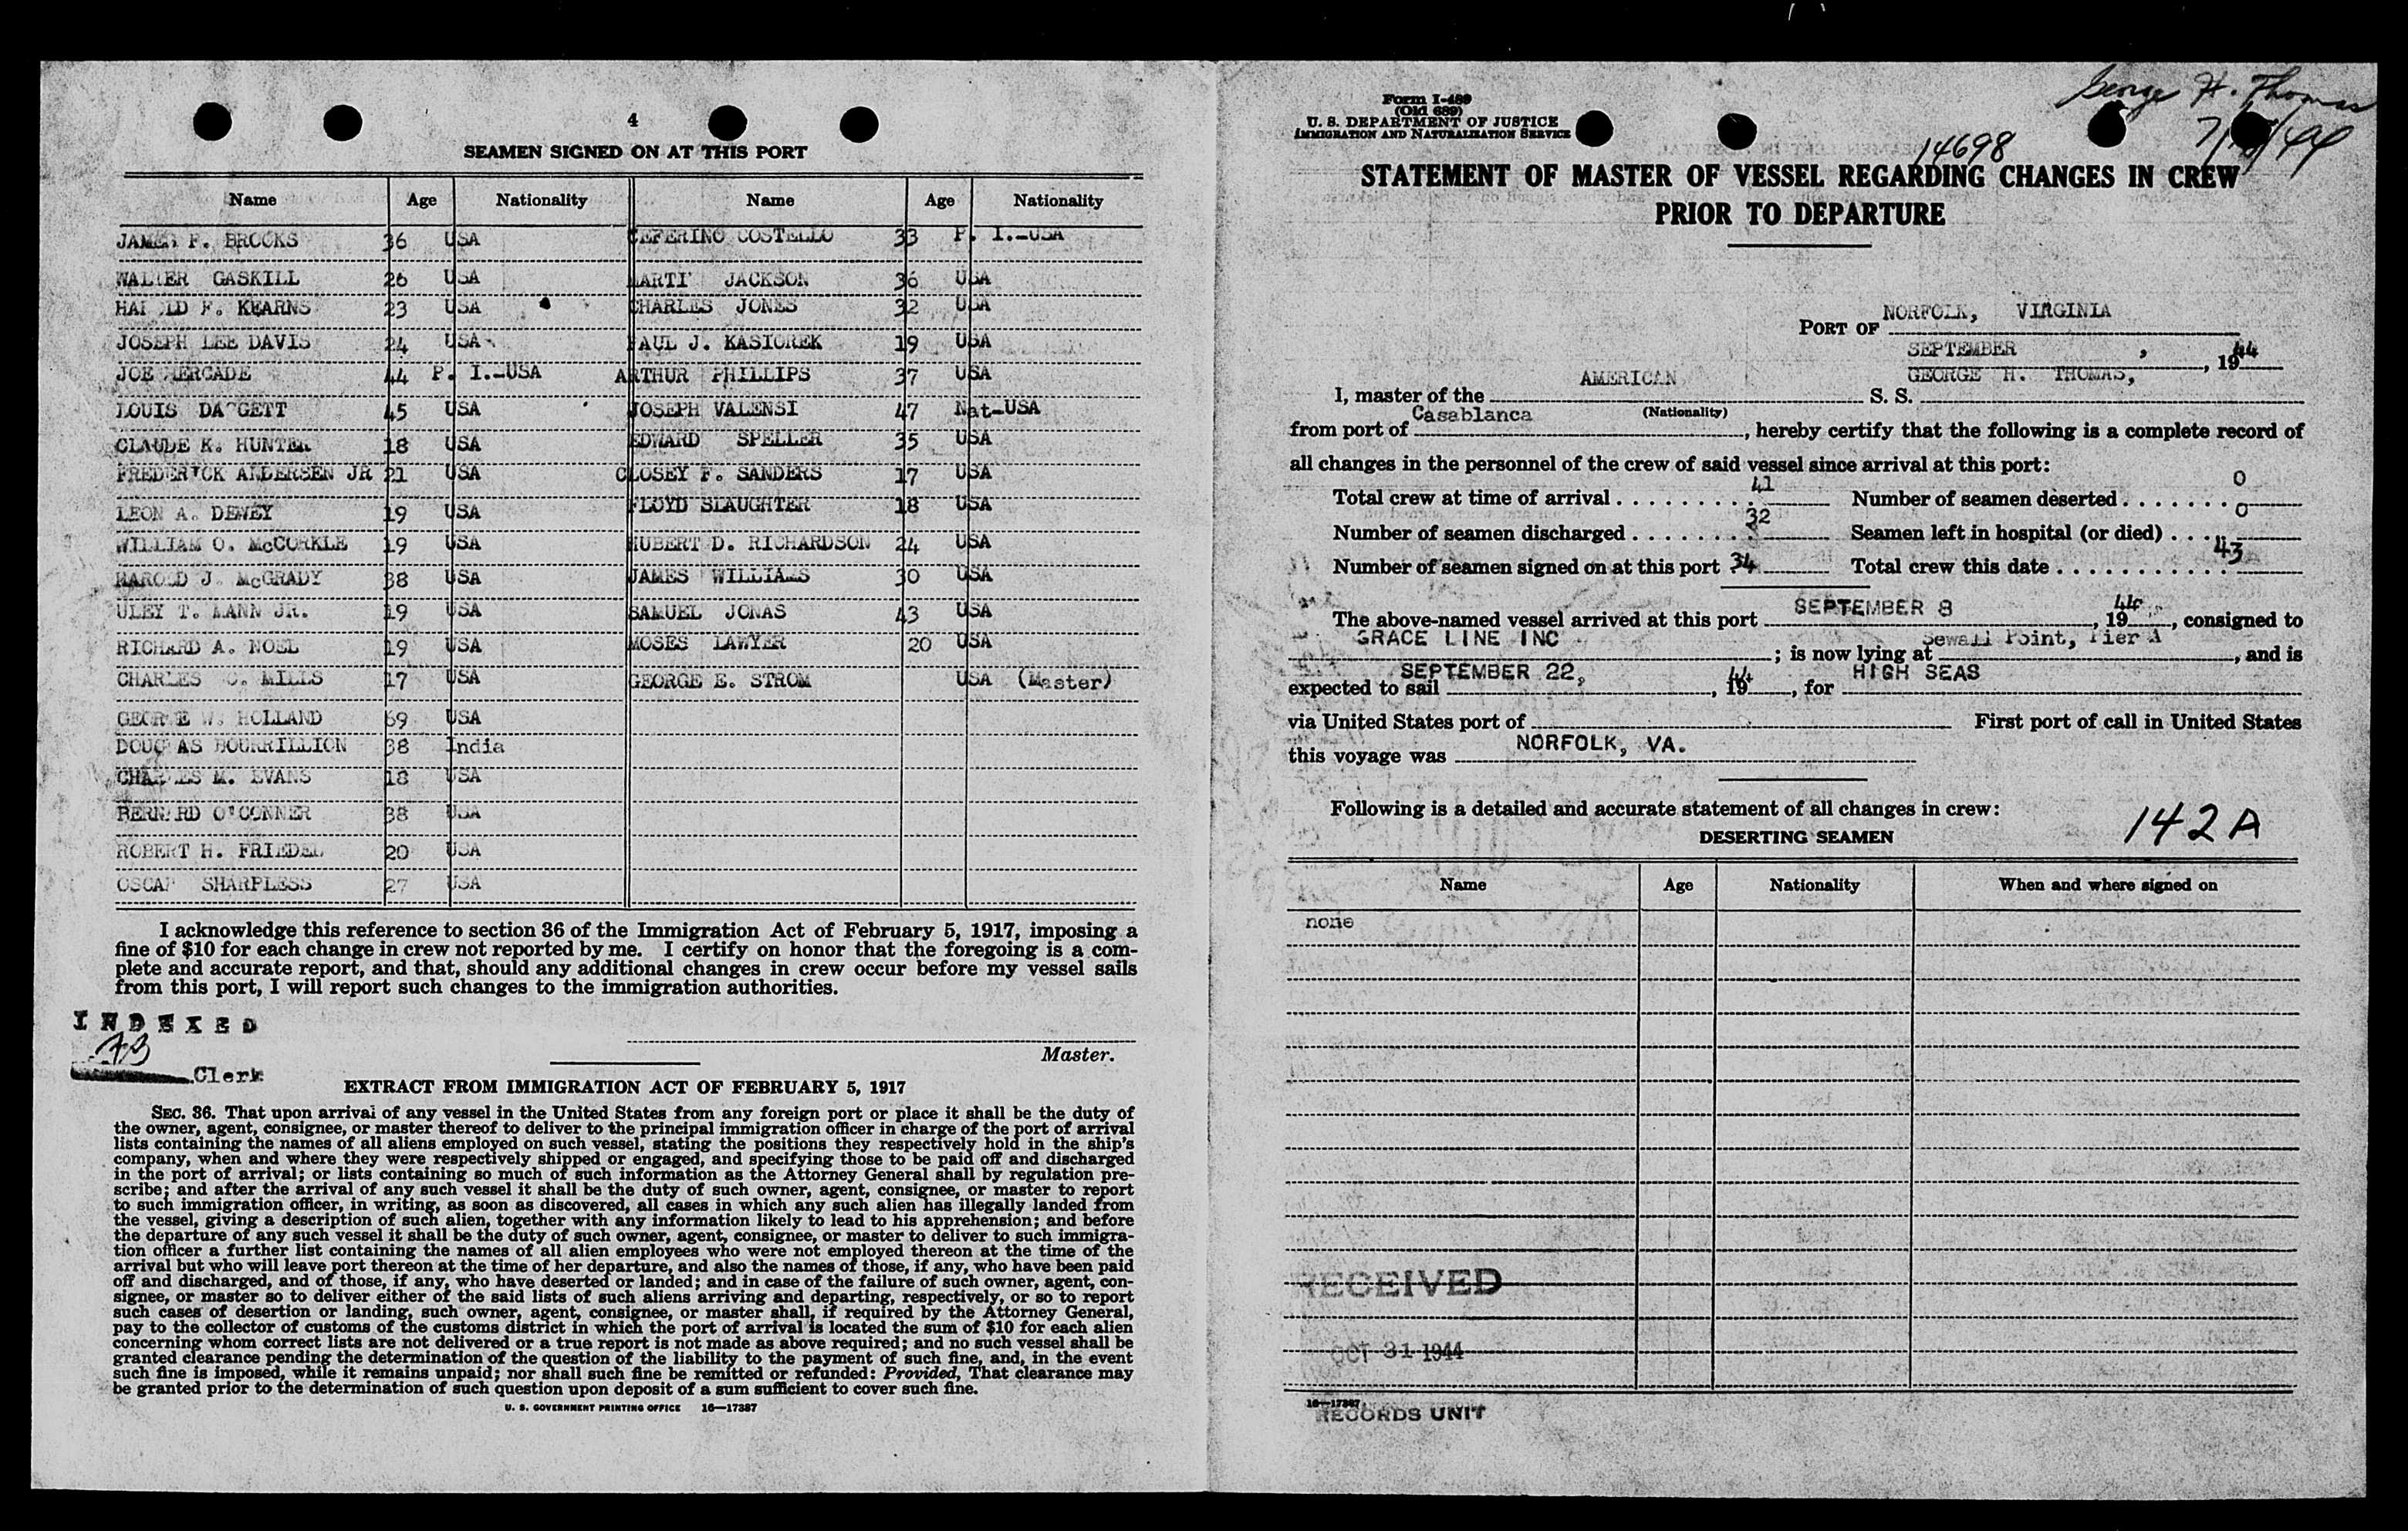 4
SEAMEN SIGNED ON AT THIS PORT
Name Age Nationality Name Age Nationality
JAMES F. BROOKS 36 USA CEFERINO COSTELLO 33 P. I.-USA
WALTER GASKILL 26 USA MARTI JACKSON 36 USA
HAROLD F. KEARNS 23 USA CHARLES JONES 32 USA
JOSEPH LEE DAVIS 24 USA PAUL J. KASIOREK 19 USA
JOE MERCADE 44 P. I.-USA ARTHUR PHILLIPS 37 USA
LOUIS DAGGETT 45 USA JOSEPH VALENSI 47 Nat-USA
CLAUDE K. HUNTER 18 USA EDWARD SPELLER 35 USA
FREDERICK ANDERSEN JR 21 USA CLOSEY F. SANDERS 17 USA
LEON A. DEWEY 19 USA FLOYD SLAUGHTER 18 USA
WILLIAM O. McCORKLE 19 USA HUBERT D. RICHARDSON 24 USA
HAROLD J. McGRADY 38 USA JAMES WILLIAMS 30 USA
ULEY T. MANN JR. 19 USA SAMUEL JONAS 43 USA
RICHARD A. NOEL 19 USA MOSES LAWYER 20 USA
CHARLES C. MILLS 17 USA GEORGE E. STROM USA (Master)
GEORGE W. HOLLAND 69 USA
DOUGLAS BOURRILLION 38 India
CHARLES M. EVANS 18 USA
BERNARD O'CONNER 38 USA
ROBERT H. FRIEDEL 20 USA
OSCAR SHARPLESS 27 USA
I acknowledge this reference to section 36 of the Immigration Act of February 5, 1917, imposing a
fine of $10 for each change in crew not reported by me. I certify on honor that the foregoing is a com-
plete and accurate report, and that, should any additional changes in crew occur before my vessel sails
from this port, I will report such changes to the immigration authorities.
INDEXED
Clerk
Master.
EXTRACT FROM IMMIGRATION ACT OF FEBRUARY 5, 1917
SEC. 36. That upon arrival of any vessel in the United States from any foreign port or place it shall be the duty of
the owner, agent, consignee, or master thereof to deliver to the principal immigration officer in charge of the port of arrival
lists containing the names of all aliens employed on such vessel, stating the positions they respectively hold in the ship's
company, when and where they were respectively shipped or engaged, and specifying those to be paid off and discharged
in the port of arrival; or lists containing so much of such information as the Attorney General shall by regulation pre-
scribe; and after the arrival of any such vessel it shall be the duty of such owner, agent, consignee, or master to report
to such immigration officer, in writing, as soon as discovered, all cases in which any such alien has illegally landed from
the vessel, giving a description of such alien, together with any information likely to lead to his apprehension; and before
the departure of any such vessel it shall be the duty of such owner, agent, consignee, or master to deliver to such immigra-
tion officer a further list containing the names of all alien employees who were not employed thereon at the time of the
arrival but who will leave port thereon at the time of her departure, and also the names of those, if any, who have been paid
off and discharged, and of those, if any, who have deserted or landed; and in case of the failure of such owner, agent, con-
signee, or master so to deliver either of the said lists of such aliens arriving and departing, respectively, or so to report
such cases of desertion or landing, such owner, agent, consignee, or master shall, if required by the Attorney General,
pay to the collector of customs of the customs district in which the port of arrival is located the sum of $10 for each alien
concerning whom correct lists are not delivered or a true report is not made as above required; and no such vessel shall be
granted clearance pending the determination of the question of the liability to the payment of such fine, and, in the event
such fine is imposed, while it remains unpaid; nor shall such fine be remitted or refunded: Provided, That clearance may
be granted prior to the determination of such question upon deposit of a sum sufficient to cover such fine.
U. S. GOVERNMENT PRINTING OFFICE 16—17387
Form I-489
(Old 689)
U. S. DEPARTMENT OF JUSTICE
IMMIGRATION AND NATURALIZATION SERVICE
George H. Thomas
14698
STATEMENT OF MASTER OF VESSEL REGARDING CHANGES IN CREW
PRIOR TO DEPARTURE
PORT OF NORFOLK, VIRGINIA
SEPTEMBER , 1944
I, master of the AMERICAN S. S. GEORGE H. THOMAS,
(Nationality)
from port of Casablanca, hereby certify that the following is a complete record of
all changes in the personnel of the crew of said vessel since arrival at this port:
Total crew at time of arrival 41 Number of seamen deserted 0
Number of seamen discharged 32 Seamen left in hospital (or died) 0
Number of seamen signed on at this port 34 Total crew this date 43
The above-named vessel arrived at this port SEPTEMBER 8, 1944, consigned to
GRACE LINE INC; is now lying at Sewall Point, Pier A, and is
expected to sail SEPTEMBER 22, 1944, for HIGH SEAS
via United States port of First port of call in United States
this voyage was NORFOLK, VA.
Following is a detailed and accurate statement of all changes in crew:
142A
DESERTING SEAMEN
Name Age Nationality When and where signed on
none
RECEIVED
OCT 31 1944
16—17387
RECORDS UNIT